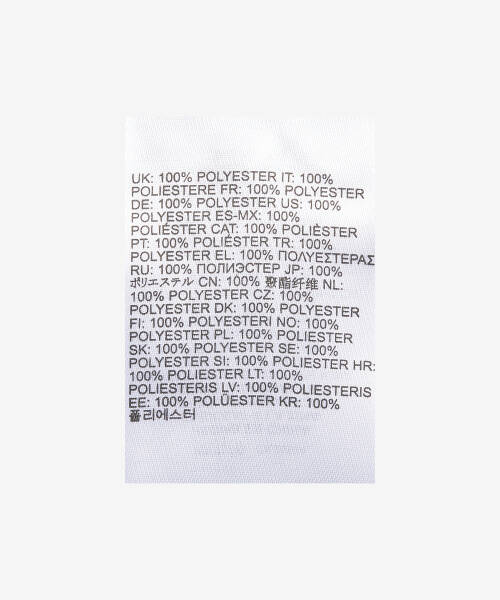 UK: 100% POLYESTER IT: 100%
POLIESTERE FR: 100% POLYESTER
DE: 100% POLYESTER US: 100%
POLYESTER ES-MX: 100%
POLIÉSTER CAT: 100% POLIÈSTER
PT: 100% POLIÉSTER TR: 100%
POLYESTER EL: 100% ΠΟΛΥΕΣΤΕΡΑΣ
RU: 100% ПОЛИЭСТЕР JP: 100%
ポリエステル CN: 100% 聚酯纤维 NL:
100% POLYESTER CZ: 100%
POLYESTER DK: 100% POLYESTER
FI: 100% POLYESTERI NO: 100%
POLYESTER PL: 100% POLIESTER
SK: 100% POLYESTER SE: 100%
POLYESTER SI: 100% POLIESTER HR:
100% POLIESTER LT: 100%
POLIESTERIS LV: 100% POLIESTERIS
EE: 100% POLÜESTER KR: 100%
폴리에스터